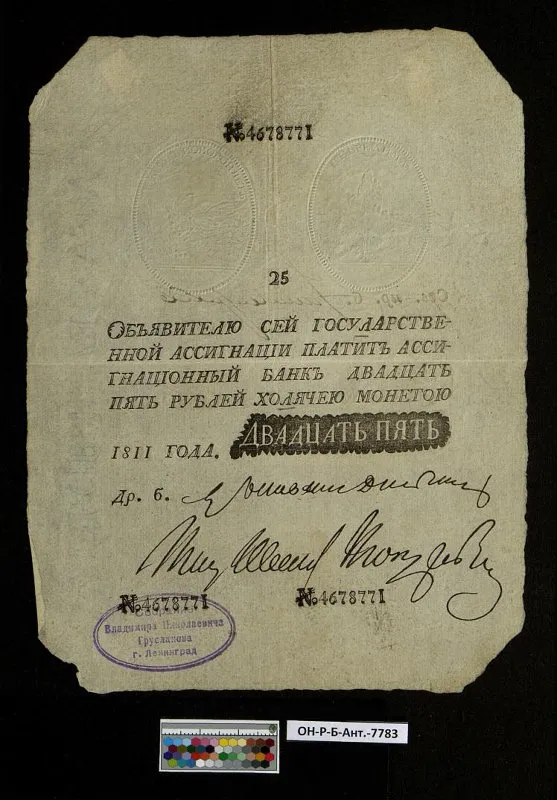 №4678771
25
ОБЪЯВИТЕЛЮ СЕЙ ГОСУДАРСТВЕ-
ННОЙ АССИГНАЦІИ ПЛАТИТЪ АССИ-
ГНАЦІОННЫЙ БАНКЪ ДВАДЦАТЬ
ПЯТЬ РУБЛЕЙ ХОДЯЧЕЮ МОНЕТОЮ
1811 ГОДА. ДВАДЦАТЬ ПЯТЬ
Др. б.
№4678771 №4678771
Владимира Николаевича
Грусланова
г. Ленинград
ОН-Р-Б-Ант.-7783